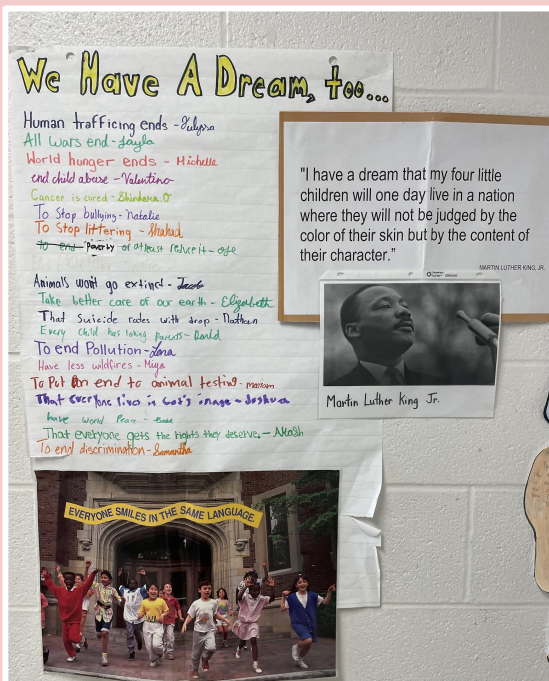 We Have A Dream, too...
Human trafficing ends - Julyssa
All wars end - Jayla
World hunger ends - Michelle
end child abuse - Valentino
Cancer is cured -
To Stop bullying - Natalie
To Stop littering - Shahd
To end Poverty or atleast reduce it -
Animals won't go extinct - Jacob
Take better care of our earth - Elizabeth
That Suicide rates with drop - Nathan
Every child has loving parents - David
To end Pollution - Lena
Have less wildfires - Miya
To Put an end to animal testing - mariam
That everyone lives in God's image - Joshua
have World Peace -
That everyone gets the rights they deserve. - Akash
To end discrimination - Samantha
"I have a dream that my four little
children will one day live in a nation
where they will not be judged by the
color of their skin but by the content of
their character."
MARTIN LUTHER KING, JR.
Martin Luther King Jr.
EVERYONE SMILES IN THE SAME LANGUAGE.